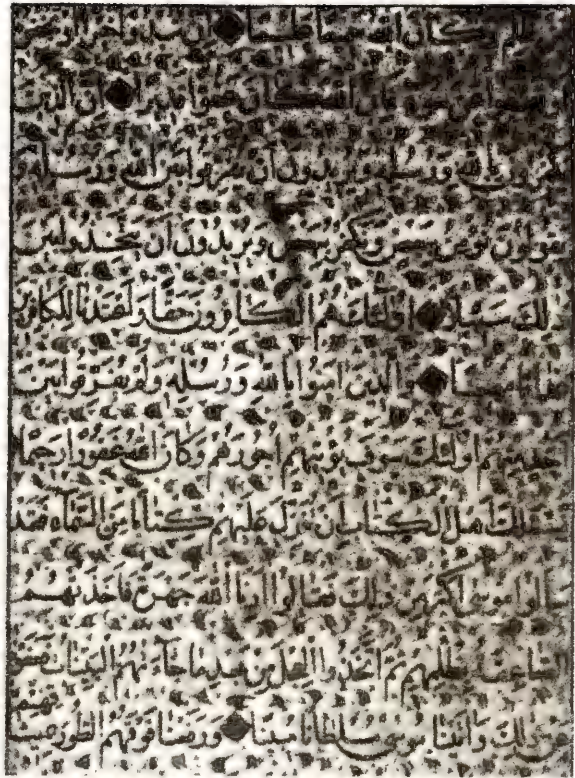 ظلم وكان الله سميعا عليما ان تبدوا خيرا او تخفوه
او تعفوا عن سوء فان الله كان عفوا قديرا ان الذين
يكفرون بالله ورسله ويريدون ان يفرقوا بين الله ورسله و
يقولون نؤمن ببعض ونكفر ببعض ويريدون ان يتخذوا بين
ذلك سبيلا اولئك هم الكافرون حقا واعتدنا للكافرين
عذابا مهينا والذين امنوا بالله ورسله ولم يفرقوا بين
احد منهم اولئك سوف يؤتيهم اجورهم وكان الله غفورا رحيما
يسئلك اهل الكتاب ان تنزل عليهم كتابا من السماء فقد
سالوا موسى اكبر من ذلك فقالوا ارنا الله جهرة فاخذتهم
الصاعقة بظلمهم ثم اتخذوا العجل من بعد ما جاءتهم البينات فعفونا
عن ذلك واتينا موسى سلطانا مبينا ورفعنا فوقهم الطور بميثاقهم